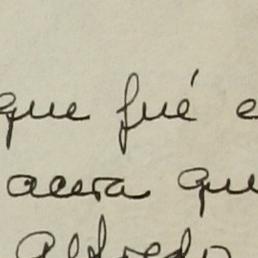 que fué e
acera que
Alfredo